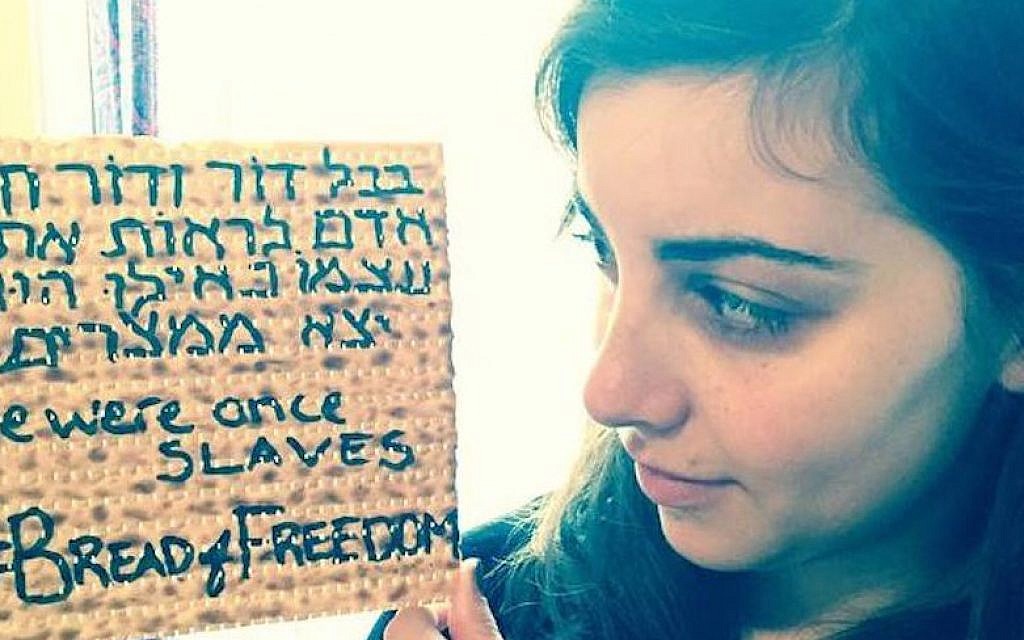 בכל דוֹר ודוֹר
אדם לראוֹת את
עצמוֹ כּאילוּ
יצא ממצרים
were once
SLAVES
BREAD of FREEDOM